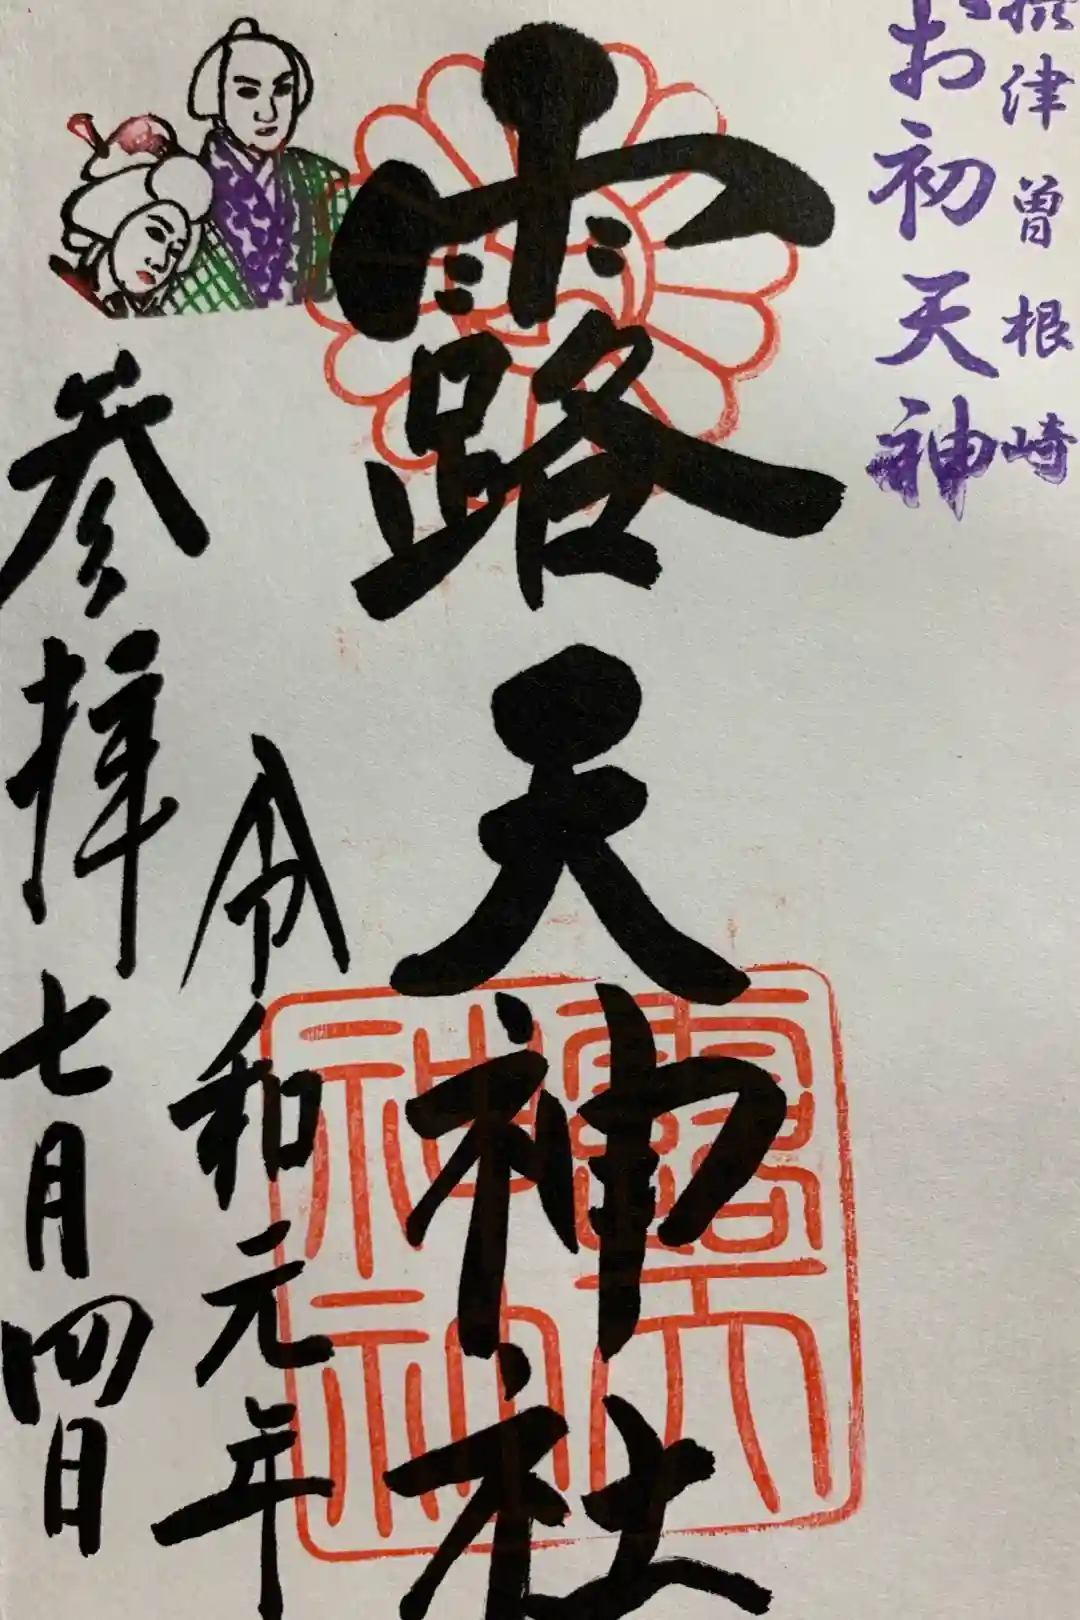 摂津曽根崎
お初天神
露天神社
令和元年
参拝七月四日
露天神社